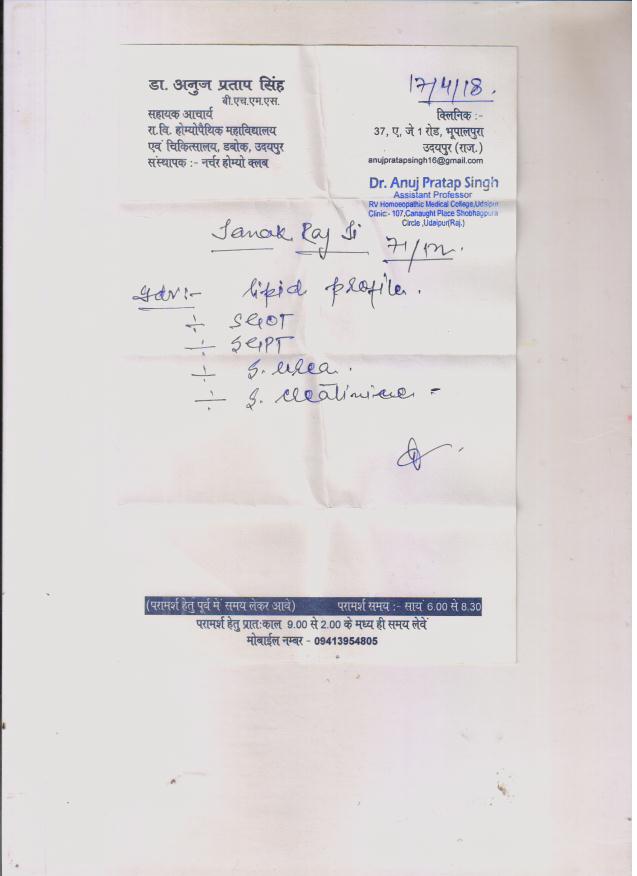 डा. अनुज प्रताप सिंह
बी.एच.एम.एस.
सहायक आचार्य
रा.वि. होम्योपैथिक महाविद्यालय
एवं चिकित्सालय, डबोक, उदयपुर
संस्थापक :- नर्चर होम्यो क्लब
17/4/18.
क्लिनिक :-
37, ए, जे 1 रोड, भूपालपुरा
उदयपुर (राज.)
anujpratapsingh16@gmail.com
Dr. Anuj Pratap Singh
Assistant Professor
RV Homoeopathic Medical College,Udaipur
Clinic:- 107,Canaught Place Shobhagpura
Circle ,Udaipur(Raj.)
Janak Raj Ji 71/m.
Adv:- lipid profile.
÷ SGOT
÷ SGPT
÷ S. urea.
÷ S. creatinine
(परामर्श हेतु पूर्व में समय लेकर आवे) परामर्श समय :- सायं 6.00 से 8.30
परामर्श हेतु प्रात:काल 9.00 से 2.00 के मध्य ही समय लेवें
मोबाईल नम्बर - 09413954805